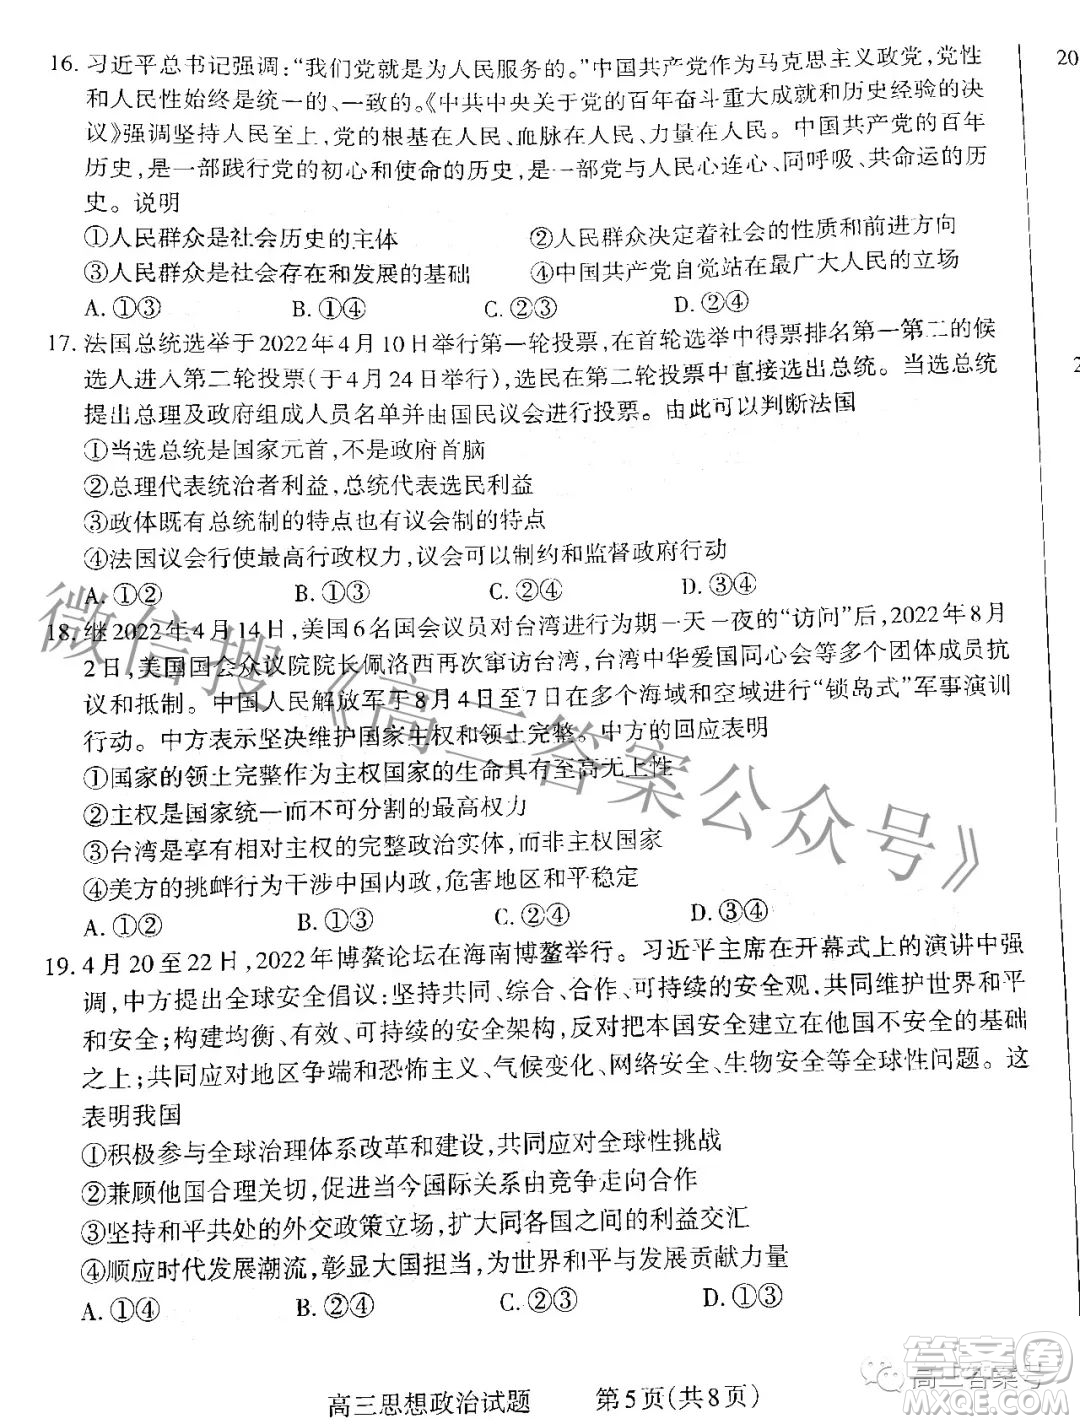 16. 习近平总书记强调:“我们党就是为人民服务的。”中国共产党作为马克思主义政党,党性
和人民性始终是统一的、一致的。《中共中央关于党的百年奋斗重大成就和历史经验的决
议》强调坚持人民至上,党的根基在人民、血脉在人民、力量在人民。中国共产党的百年
历史,是一部践行党的初心和使命的历史,是一部党与人民心连心、同呼吸、共命运的历
史。说明
①人民群众是社会历史的主体 ②人民群众决定着社会的性质和前进方向
③人民群众是社会存在和发展的基础 ④中国共产党自觉站在最广大人民的立场
A. ①③ B. ①④ C. ②③ D. ②④
17. 法国总统选举于2022年4月10日举行第一轮投票,在首轮选举中得票排名第一第二的候
选人进入第二轮投票(于4月24日举行),选民在第二轮投票中直接选出总统。当选总统
提出总理及政府组成人员名单并由国民议会进行投票。由此可以判断法国
①当选总统是国家元首,不是政府首脑
②总理代表统治者利益,总统代表选民利益
③政体既有总统制的特点也有议会制的特点
④法国议会行使最高行政权力,议会可以制约和监督政府行动
A. ①② B. ①③ C. ②④ D. ③④
18. 继2022年4月14日,美国6名国会议员对台湾进行为期一天一夜的“访问”后,2022年8月
2日,美国国会众议院院长佩洛西再次窜访台湾,台湾中华爱国同心会等多个团体成员抗
议和抵制。中国人民解放军于8月4日至7日在多个海域和空域进行“锁岛式”军事演训
行动。中方表示坚决维护国家主权和领土完整。中方的回应表明
①国家的领土完整作为主权国家的生命具有至高无上性
②主权是国家统一而不可分割的最高权力
③台湾是享有相对主权的完整政治实体,而非主权国家
④美方的挑衅行为干涉中国内政,危害地区和平稳定
A. ①② B. ①③ C. ②④ D. ③④
19. 4月20至22日,2022年博鳌论坛在海南博鳌举行。习近平主席在开幕式上的演讲中强
调,中方提出全球安全倡议:坚持共同、综合、合作、可持续的安全观,共同维护世界和平
和安全;构建均衡、有效、可持续的安全架构,反对把本国安全建立在他国不安全的基础
之上;共同应对地区争端和恐怖主义、气候变化、网络安全、生物安全等全球性问题。这
表明我国
①积极参与全球治理体系改革和建设,共同应对全球性挑战
②兼顾他国合理关切,促进当今国际关系由竞争走向合作
③坚持和平共处的外交政策立场,扩大同各国之间的利益交汇
④顺应时代发展潮流,彰显大国担当,为世界和平与发展贡献力量
A. ①④ B. ③④ C. ②③ D. ①③
高三思想政治试题 第5页(共8页)
20
2
微信搜《高三答案公众号》
高三答案号
答案圈
MXQE.COM